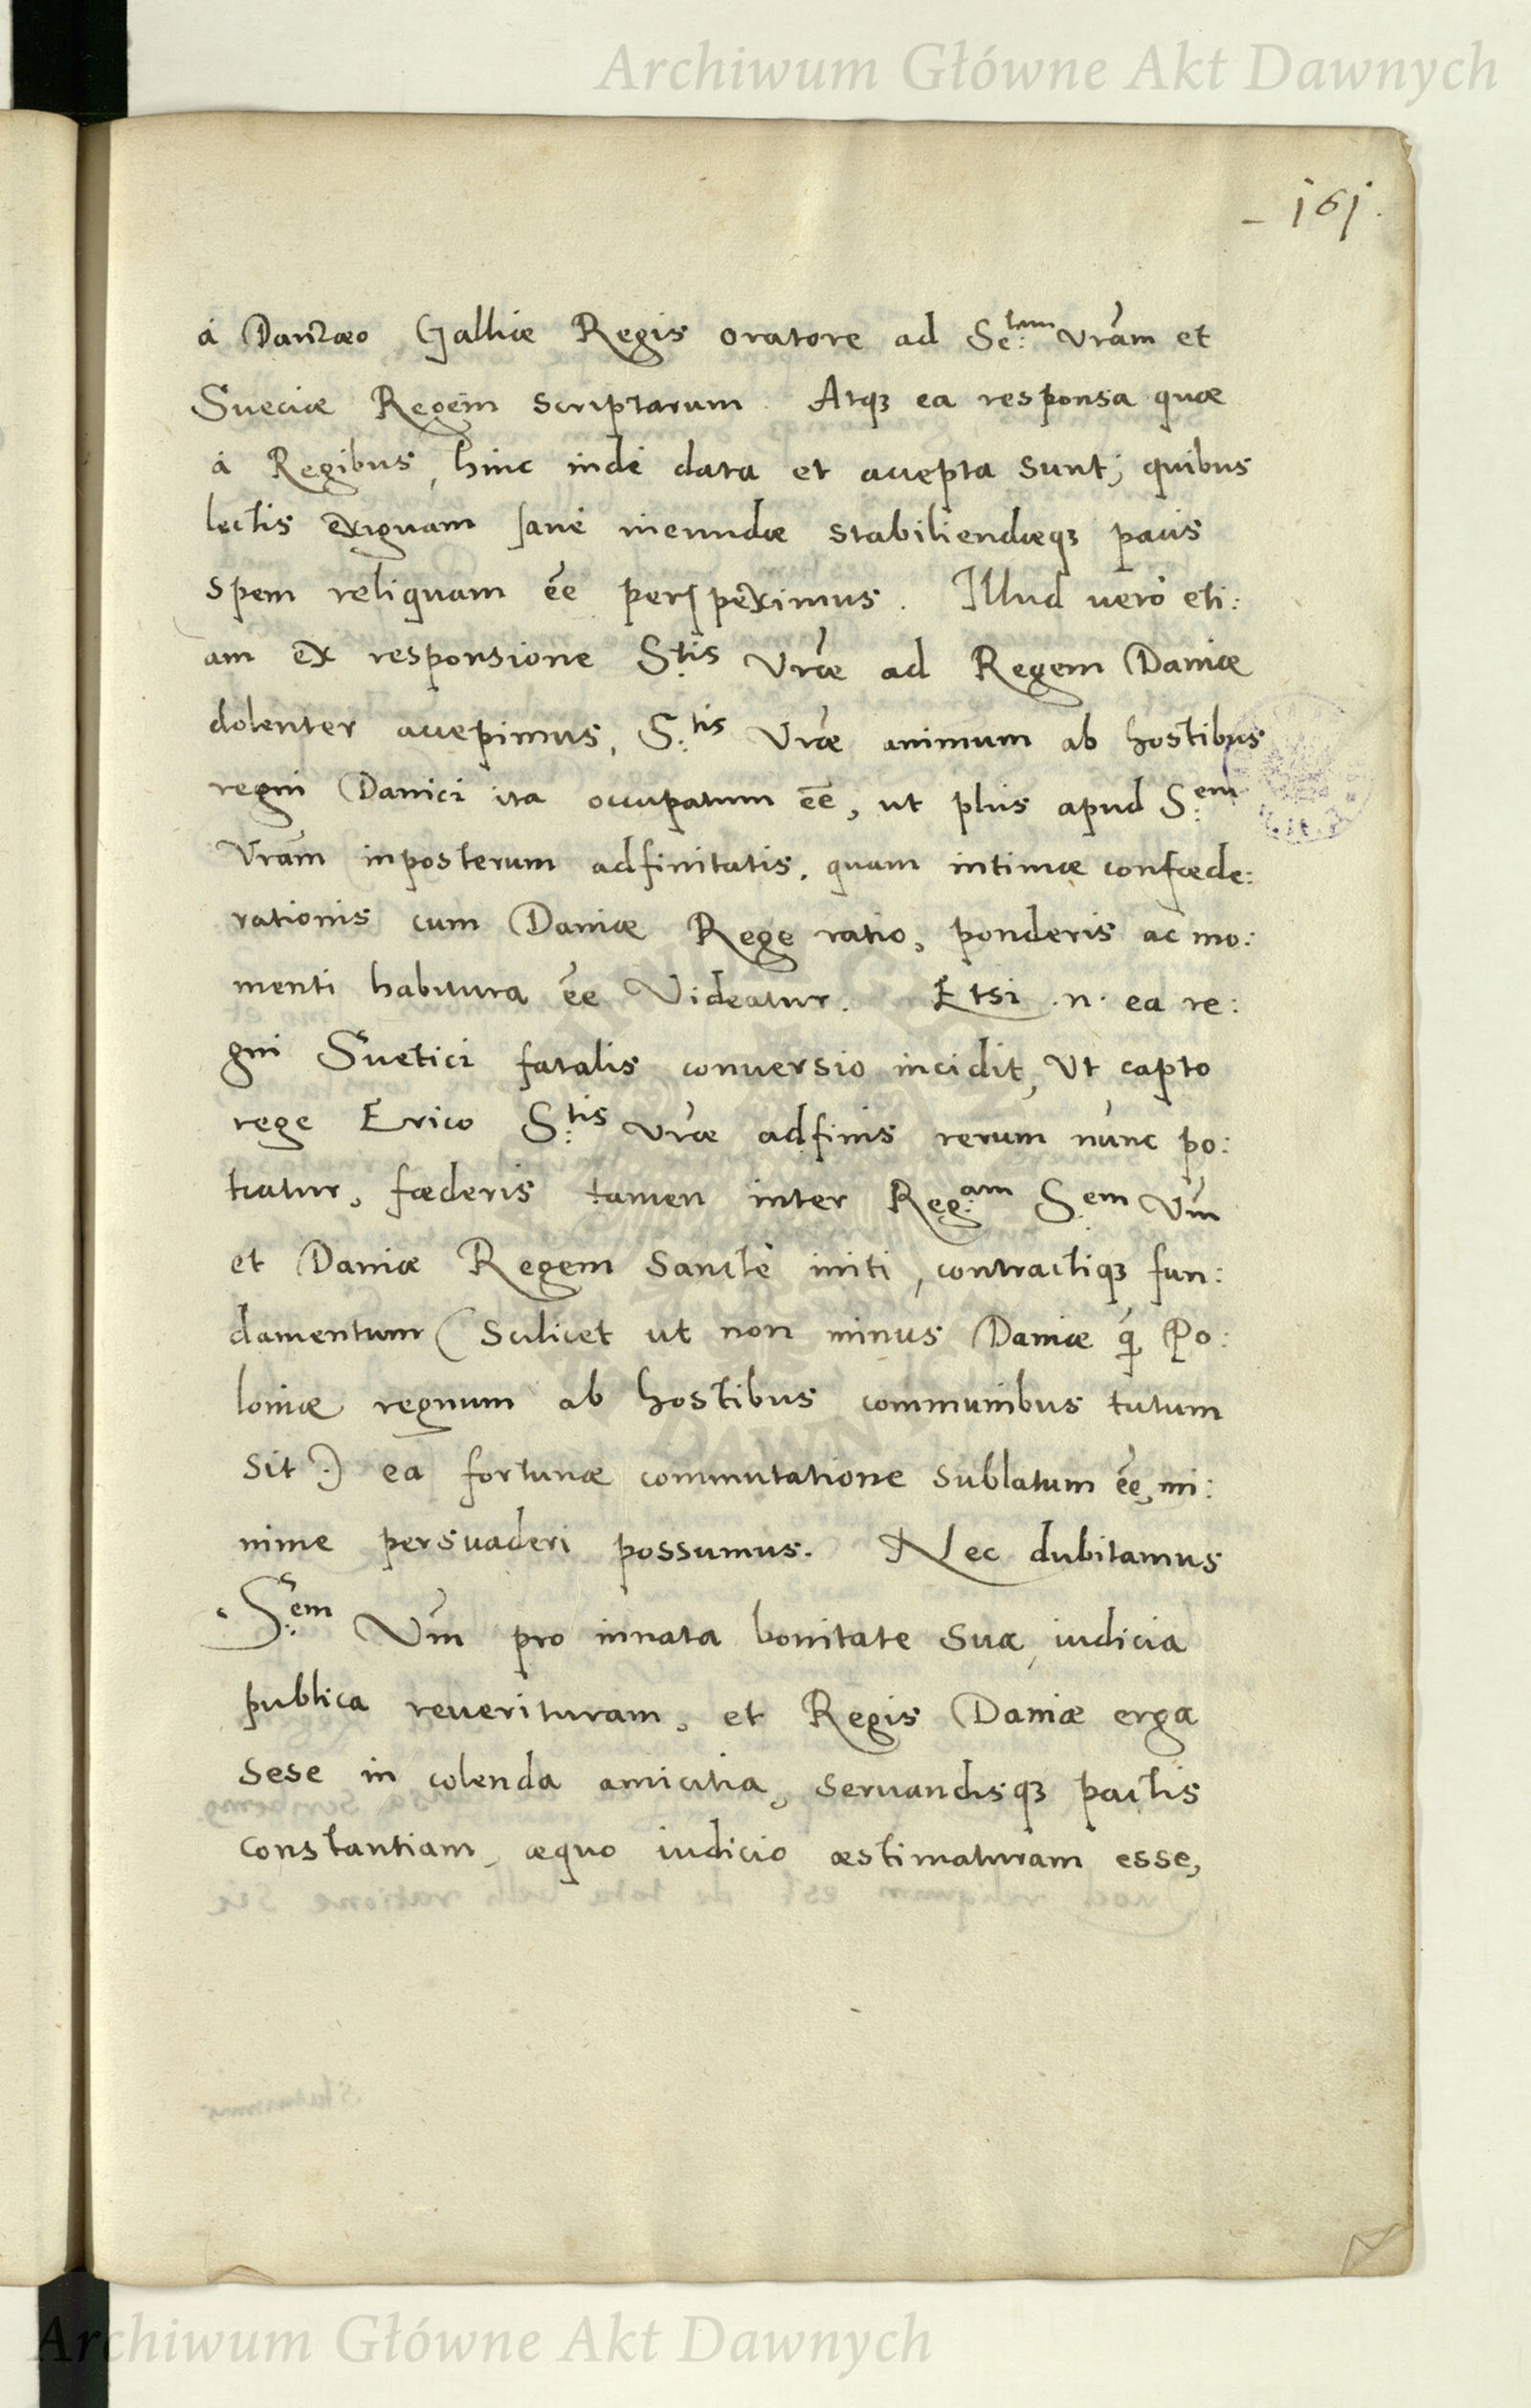 Archiwum Główne Akt Dawnych
- 161.
á Danzæo Galliæ Regis oratore ad Se:tem Vram et
Sueciæ Regem scriptarum. Atqȝ ea responsa quæ
á Regibus, hinc indé data et accepta sunt; quibus
lectis exiguam sané ineundæ stabiliendæqȝ pacis
spem reliquam ēē perspeximus. Illud ueró eti:
am ex responsione S:tis Vræ ad Regem Daniæ
dolenter accepimus, S:tis Vræ animum ab hostibus
regni Danici ita occupatum ēē, ut plus apud S:em
Vram inposterum adfinitatis, quam intimæ confœde:
rationis cum Daniæ Rege ratio, ponderis ac mo:
menti habitura ēē Videatur. Etsi .n. ea re:
gni Suetici fatalis conuersio incidit, Vt capto
rege Erico S:tis Vræ adfinis rerum nunc po:
tiatur, fœderis tamen inter Reg:am S:em Vm̃
et Daniæ Regem Sancté initi, contractiqȝ fun:
damentum (Scilicet ut non minus Daniæ q̃ Po:
loniæ regnum ab hostibus communibus tutum
sit.) ea fortunæ commutatione sublatum ēē, mi:
nime persuaderi possumus. Nec dubitamus
S:em Vm̃ pro innata bonitate sua, iudicia
publica reuerituram, et Regis Daniæ erga
sese in colenda amicitia, seruandisqȝ pactis
constantiam, æquo iudicio æstimaturam esse,
Archiwum Główne Akt Dawnych